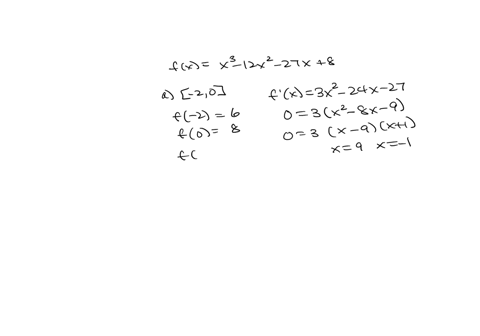 f(x) = x³-12x²-27x+8
a) [-2,0]
f(-2) = 6
f(0) = 8
f(
f'(x)=3x²-24x-27
0=3(x²-8x-9)
0=3 (x-9)(x+1)
x=9 x=-1